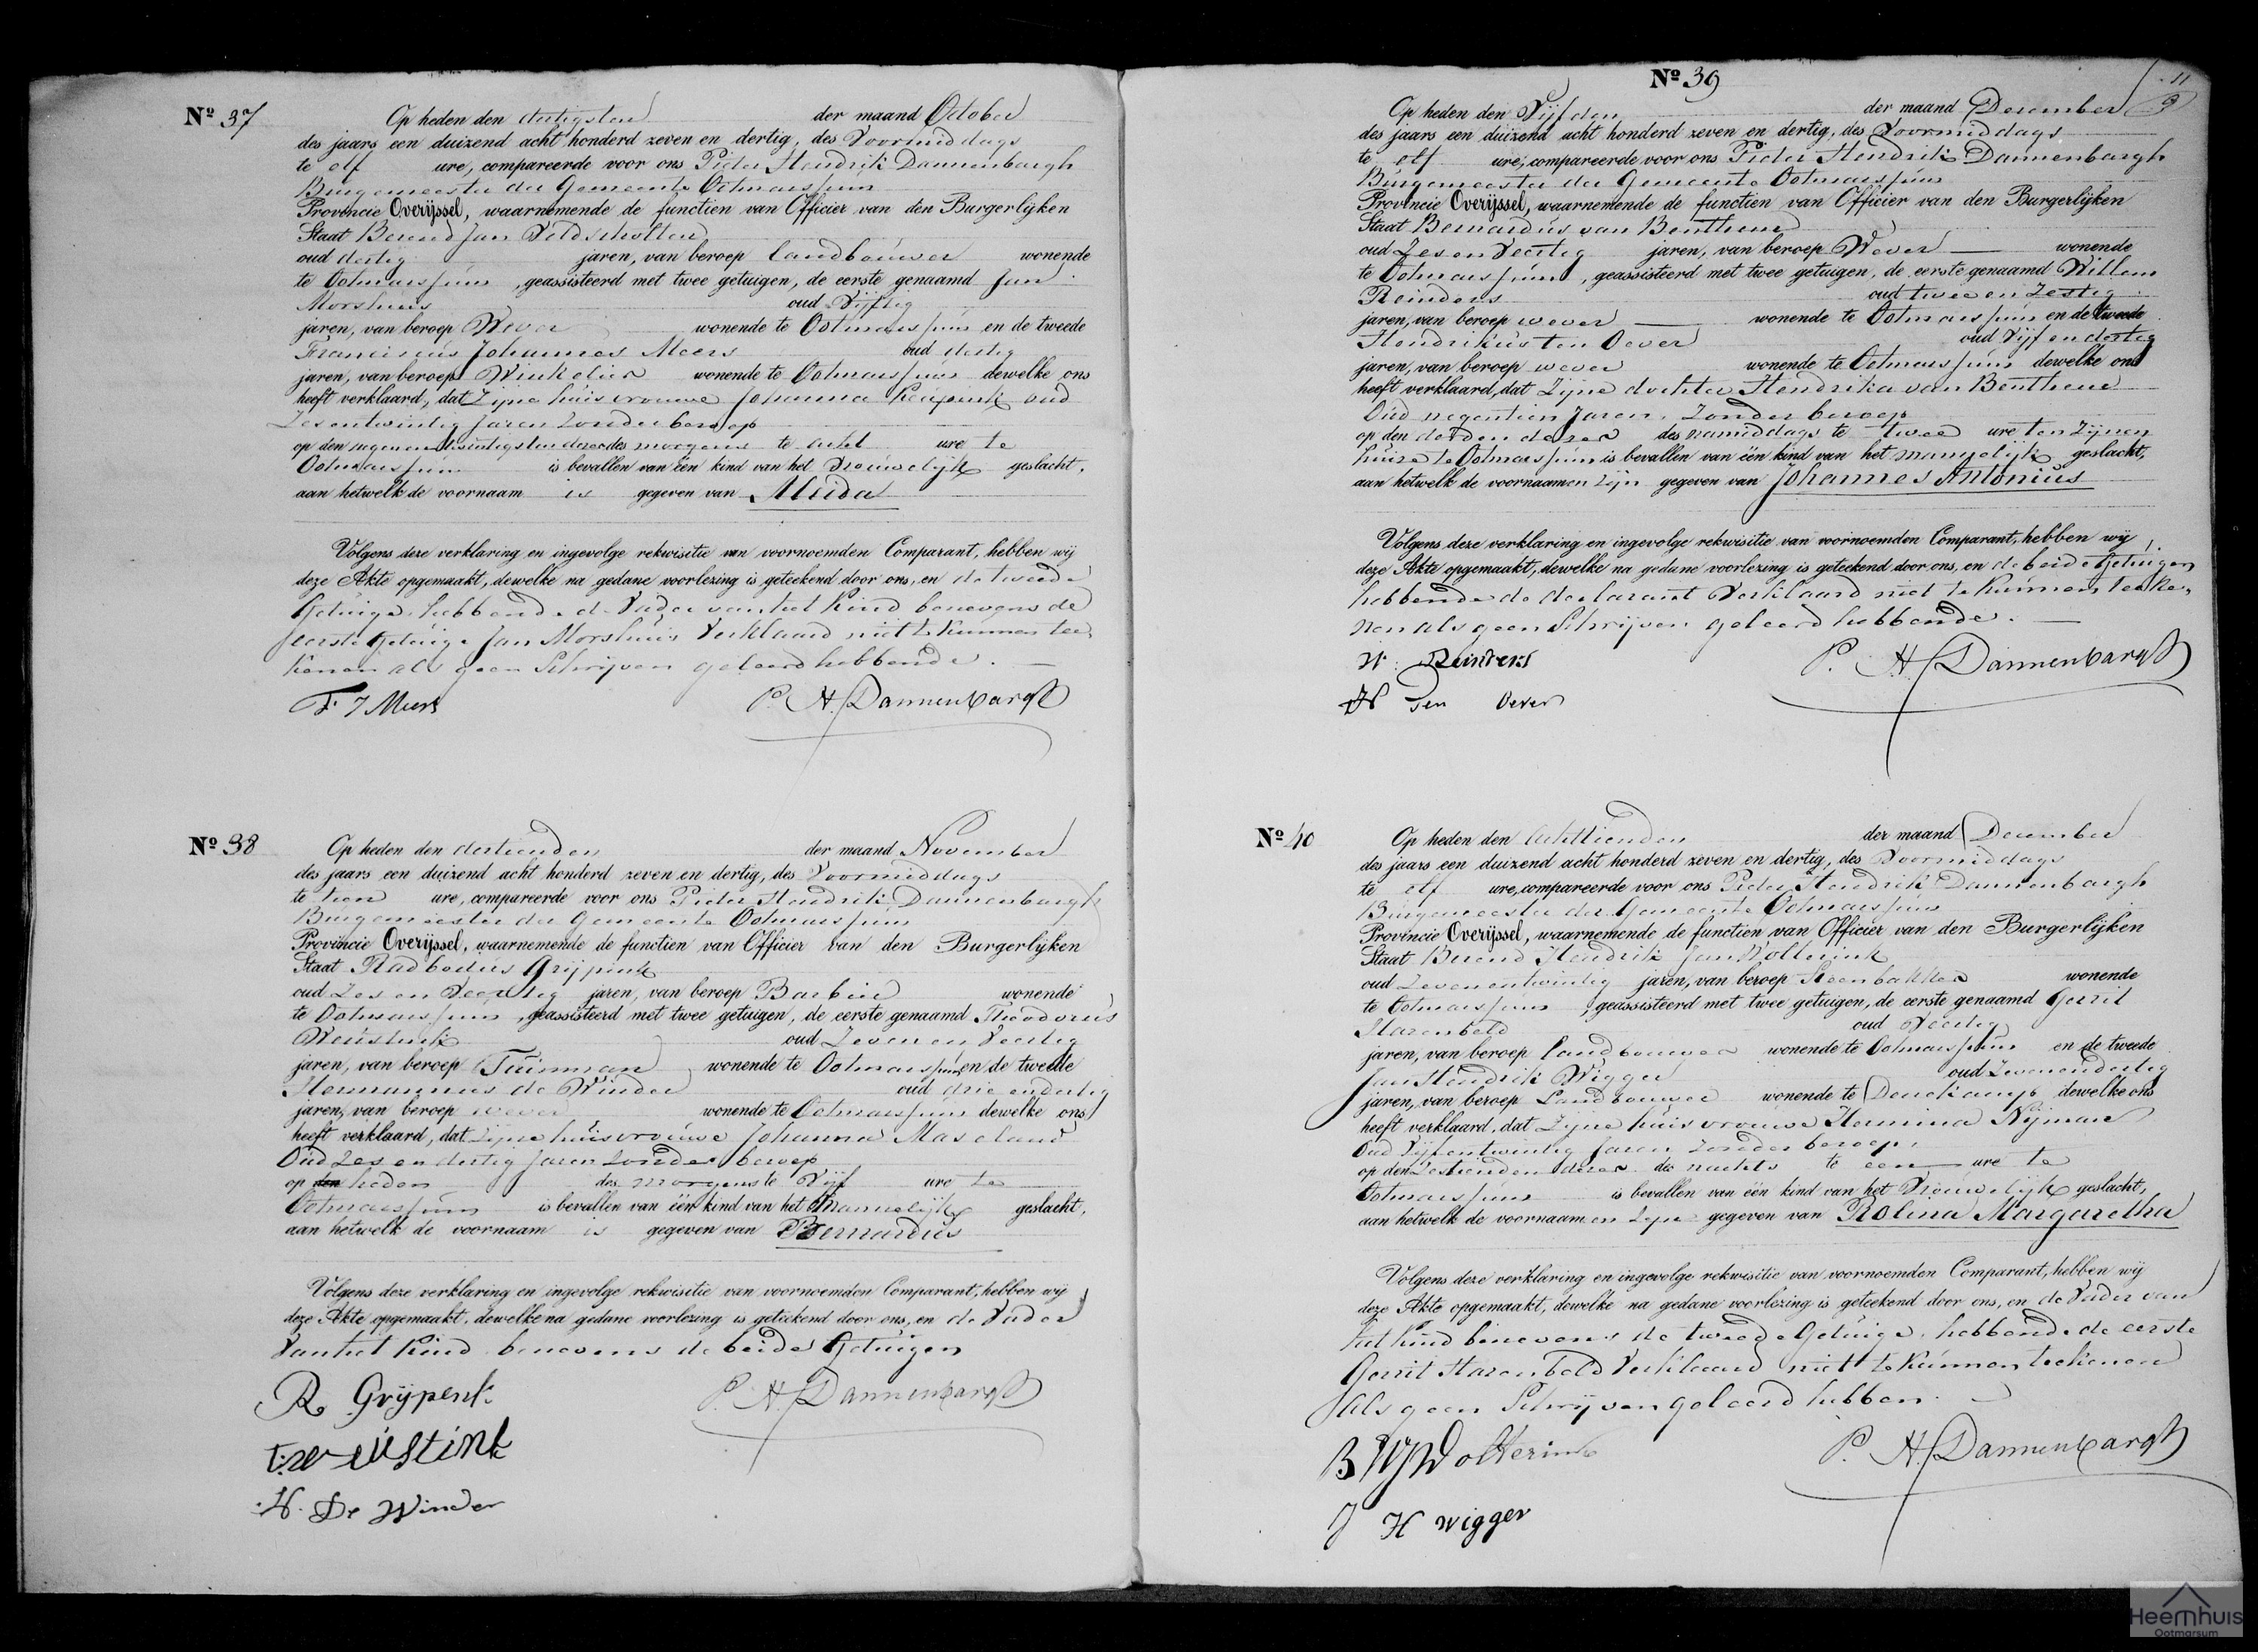 Nº 37
Op heden den dertigsten der maand October
des jaars een duizend acht honderd zeven en dertig, des Voormiddags
te elf ure, compareerde voor ons Pieter Hendrik Dannenbargh
Burgemeester der Gemeente Ootmarssum
Provincie Overijssel, waarnemende de functien van Officier van den Burgerlijken
Staat Berend Jan Veldscholten
oud dertig jaren, van beroep landbouwer wonende
te Ootmarssum, geassisteerd met twee getuigen, de eerste genaamd Jan
Morshuis oud Vijftig
jaren, van beroep Wever wonende te Ootmarssum en de tweede
Franciscus Johannes Meers oud dertig
jaren, van beroep Winkelier wonende te Ootmarssum dewelke ons
heeft verklaard, dat Zijne huisvrouwe Johanna oud
Zesentwintig Jaren Zonder beroep
op den negenentwintigsten dezer des morgens te acht ure te
Ootmarssum is bevallen van één kind van het Vrouwelijk geslacht,
aan hetwelk de voornaam is gegeven van Aleida
Volgens deze verklaring en ingevolge rekwisitie van voornoemden Comparant, hebben wij
deze Akte opgemaakt, dewelke na gedane voorlezing is geteekend door ons, en de tweede
Getuige, hebbende de Vader van het Kind benevens de
eerste Getuige Jan Morshuis Verklaard niet te kunnen tee
kenen als geen Schrijven geleerd hebbende.
F J Meers P. H. Dannenbargh
Nº 38
Op heden den dertienden der maand November
des jaars een duizend acht honderd zeven en dertig, des Voormiddags
te tien ure, compareerde voor ons Pieter Hendrik Dannenbargh
Burgemeester der Gemeente Ootmarssum
Provincie Overijssel, waarnemende de functien van Officier van den Burgerlijken
Staat Radbodus Grijpink
oud Zes en Veertig jaren, van beroep Barbier wonende
te Ootmarssum, geassisteerd met twee getuigen, de eerste genaamd Theodorus
Weustink oud Zeven en Veertig
jaren, van beroep Tuinman wonende te Ootmarssum en de tweede
Hermannus de Winder oud drie en dertig
jaren, van beroep wever wonende te Ootmarssum dewelke ons
heeft verklaard, dat Zijne huisvrouwe Johanna Maseland
Oud Zes en dertig Jaren Zonder beroep
op den heden des morgens te Vijf ure te
Ootmarssum is bevallen van één kind van het Mannelijk geslacht,
aan hetwelk de voornaam is gegeven van Bernardus
Volgens deze verklaring en ingevolge rekwisitie van voornoemden Comparant, hebben wij
deze Akte opgemaakt, dewelke na gedane voorlezing is geteekend door ons, en de Vader
Van het Kind benevens de beide Getuigen
R Grijpenk P. H. Dannenbargh
T: Weustink
H. De Winder
11
9
Nº 39
Op heden den Vijfden der maand December
des jaars een duizend acht honderd zeven en dertig, des Voormiddags
te elf ure, compareerde voor ons Pieter Hendrik Dannenbargh
Burgemeester der Gemeente Ootmarssum
Provincie Overijssel, waarnemende de functien van Officier van den Burgerlijken
Staat Bernardus van Benthem
oud Zes en Veertig jaren, van beroep Wever wonende
te Ootmarssum, geassisteerd met twee getuigen, de eerste genaamd Willem
Reinders oud twee en Zestig
jaren, van beroep wever wonende te Ootmarssum en de tweede
Hendrikus ten Oever oud Vijf en dertig
jaren, van beroep wever wonende te Ootmarssum dewelke ons
heeft verklaard, dat Zijne dochter Hendrika van Benthem
Oud negentien Jaren, Zonder beroep
op den derden dezer des namiddags te twee ure ten Zijnen
huize te Ootmarssum is bevallen van één kind van het mannelijk geslacht,
aan hetwelk de voornaamen zijn gegeven van Johannes Antonius
Volgens deze verklaring en ingevolge rekwisitie van voornoemden Comparant, hebben wij
deze Akte opgemaakt, dewelke na gedane voorlezing is geteekend door ons, en de beide Getuigen
hebbende de declarant Verklaard niet te kunnen teeke,
nen als geen Schrijven geleerd hebbende.
W: Reinders P. H. Dannenbargh
H Ten Oever
Nº 40
Op heden den Achttienden der maand December
des jaars een duizend acht honderd zeven en dertig, des Voormiddags
te elf ure, compareerde voor ons Pieter Hendrik Dannenbargh
Burgemeester der Gemeente Ootmarssum
Provincie Overijssel, waarnemende de functien van Officier van den Burgerlijken
Staat Berend Hendrik Jan Wolterink
oud Zevenentwintig jaren, van beroep Steenbakker wonende
te Ootmarssum, geassisteerd met twee getuigen, de eerste genaamd Gerrit
Harenbeld oud Veertig
jaren, van beroep landbouwer wonende te Ootmarssum en de tweede
Jan Hendrik Wigger oud Zevenendertig
jaren, van beroep Landbouwer wonende te Denekamp dewelke ons
heeft verklaard, dat Zijne huisvrouwe Hermina Nijman
Oud Vijfentwintig Jaren Zonder beroep,
op den Zestienden dezer des nachts te een ure te
Ootmarssum is bevallen van één kind van het Vrouwelijk geslacht,
aan hetwelk de voornaamen zijn gegeven van Rolina Margaretha
Volgens deze verklaring en ingevolge rekwisitie van voornoemden Comparant, hebben wij
deze Akte opgemaakt, dewelke na gedane voorlezing is geteekend door ons, en de Vader van
het Kind benevens de tweede Getuige, hebbende de eerste
Gerrit Harenbeld Verklaard niet te kunnen teekenen
Als geen Schrijven geleerd hebben.
B H J Wolterink P. H. Dannenbargh
J H Wigger
Heemhuis
Ootmarsum